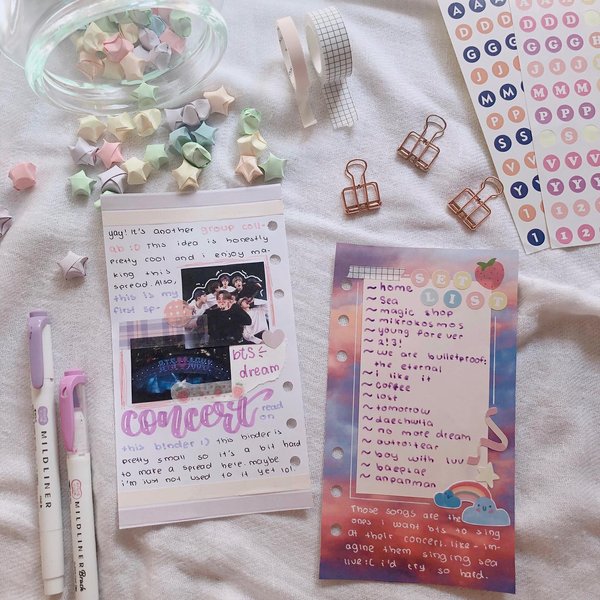 yay! it's another group coll-
ab :0 This idea is honestly
pretty cool and i enjoy ma-
king this
spread. Also,
this is my
first sp-
bts
dream
concert
read
on
this binder :) this binder is
pretty small so it's a bit hard
to make a spread here. maybe
i'm just not used to it yet lol
SET
LIST
~ home
~ sea
~ magic shop
~ mikrokosmos
~ young forever
~ 2!3!
~ we are bulletproof:
the eternal
~ i like it
~ coffee
~ lost
~ tomorrow
~ daechwita
~ no more dream
~ outro:tear
~ boy with luv
~ baepsae
~ anpanman
Those songs are the
ones i want bts to sing
at their concert. like - im-
agine them singing sea
live :( i'd try so hard.
MILDLINER
MILDLINER Brush
A S T
D D D
G G H
J
M P P
S
V V V
Y
1 1 1
2